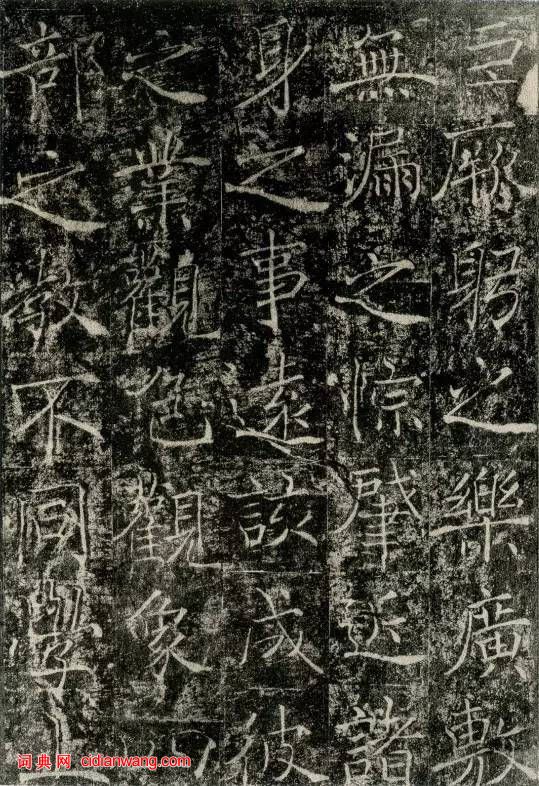 厥躬之樂廣敷
無漏之悰肇諸
身之事遠該成彼
之業觀色觀象
部之教不同學
词典网 cidianwang.com